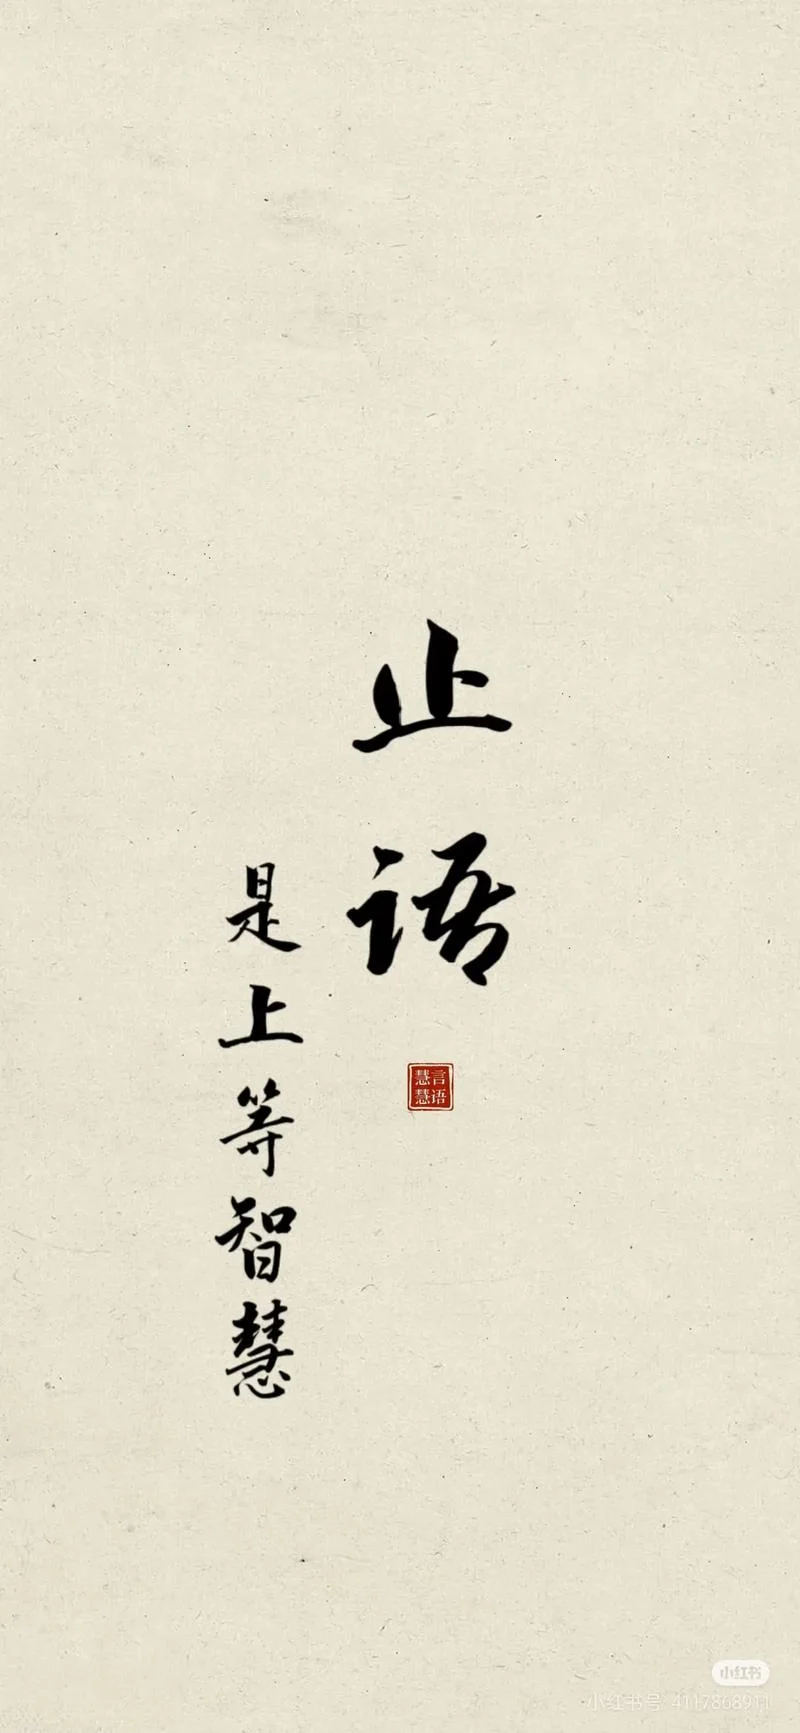 止语
是上等智慧
言语
慧慧
小红书
小红书号 4117868911